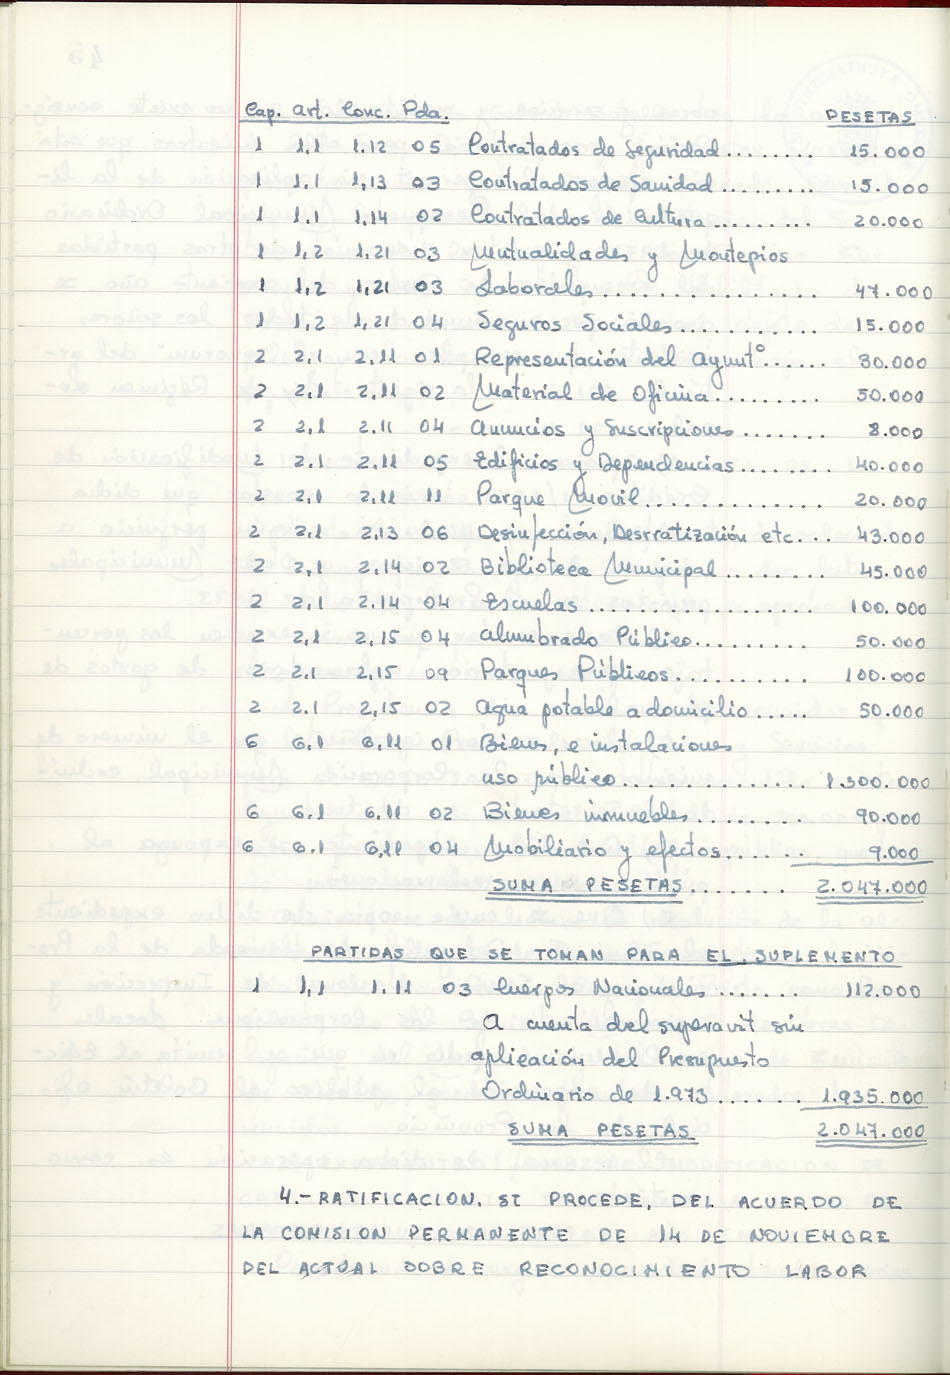 Cap. Art. Conc. Pda. PESETAS
1 1.1 1.12 05 Contratados de Seguridad........ 15.000
1 1.1 1.13 03 Contratados de Sanidad......... 15.000
1 1.1 1.14 02 Contratados de Cultura......... 20.000
1 1.2 1.21 03 Mutualidades y Montepios
1 1.2 1.21 03 Laborales................ 47.000
1 1.2 1.21 04 Seguros Sociales............ 15.000
2 2.1 2.11 01 Representación del Ayuntº...... 30.000
2 2.1 2.11 02 Material de Oficina......... 50.000
2 2.1 2.11 04 Anuncios y Suscripciones....... 8.000
2 2.1 2.11 05 Edificios y Dependencias....... 40.000
2 2.1 2.11 11 Parque Movil............. 20.000
2 2.1 2.13 06 Desinfección, Desrratización etc... 43.000
2 2.1 2.14 02 Biblioteca Municipal........ 45.000
2 2.1 2.14 04 Escuelas ................ 100.000
2 2.1 2.15 04 Alumbrado Público.......... 50.000
2 2.1 2.15 09 Parques Públicos........... 100.000
2 2.1 2.15 02 Agua potable a domicilio ..... 50.000
6 6.1 6.11 01 Bienes, e instalaciones
uso público............... 1.300.000
6 6.1 6.11 02 Bienes inmuebles.......... 90.000
6 6.1 6.11 04 Mobiliario y efectos....... 9.000
SUMA PESETAS ....... 2.047.000
PARTIDAS QUE SE TOMAN PARA EL SUPLEMENTO
1 1.1 1.11 03 Cuerpos Nacionales ....... 112.000
A cuenta del superavit sin
aplicación del Presupuesto
Ordinario de 1.973 ...... 1.935.000
SUMA PESETAS 2.047.000
4.- RATIFICACION, SI PROCEDE, DEL ACUERDO DE
LA COMISION PERMANENTE DE 14 DE NOVIEMBRE
DEL ACTUAL SOBRE RECONOCIMIENTO LABOR